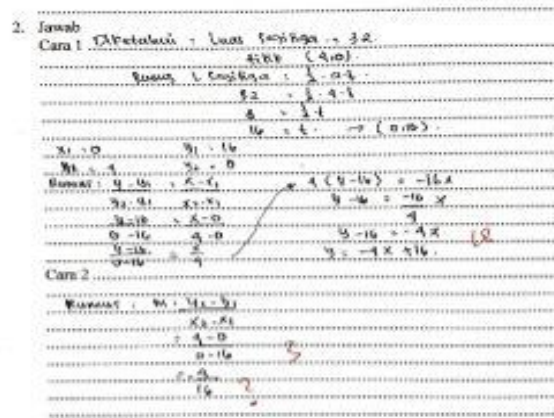 2. Jawab
Cara 1 Diketahui : Luas Segitiga = 32
titik (4,0).
Rumus L Segitiga : 1/2 . a . t
32 = 1/2 . 4 . t
8 = 1/2 . t
16 = t. → (0,16).
x1 = 0 y1 = 16
x2 = 4 y2 = 0
Rumus : y - y1 / y2 - y1 = x - x1 / x2 - x1
y - 16 / 0 - 16 = x - 0 / 4 - 0
y - 16 / 0 - 16 = x / 4
4 (y - 16) = -16x
y - 16 = -16 x / 4
y - 16 = -4x
y = -4x + 16.
Cara 2
Rumus : m = y2 - y1 / x2 - x1
= 4 - 0 / 0 - 16
= - 4 / 16
3
?